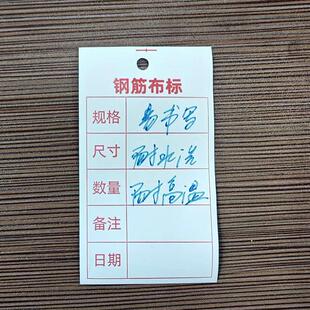 钢筋布标
规格 易书写
尺寸 耐水洗
数量 耐高温
备注
日期